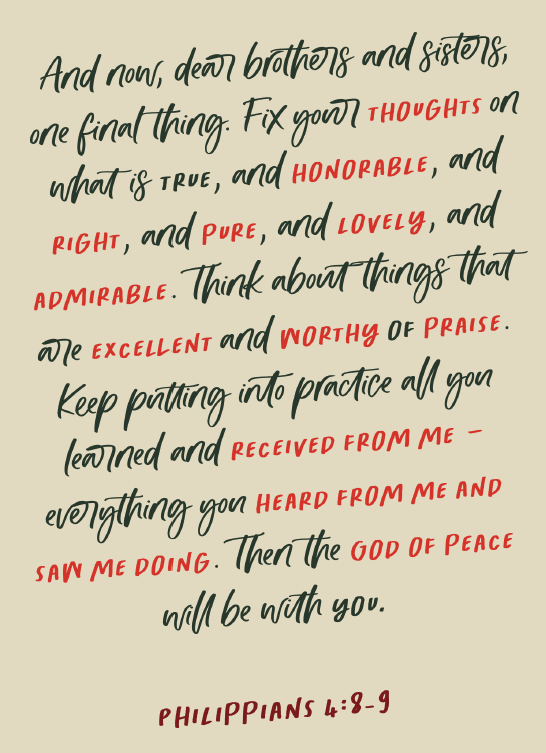 And now, dear brothers and sisters,
one final thing. Fix your THOUGHTS on
what is TRUE, and HONORABLE, and
RIGHT, and PURE, and LOVELY, and
ADMIRABLE. Think about things that
are EXCELLENT and WORTHY OF PRAISE.
Keep putting into practice all you
learned and RECEIVED FROM ME –
everything you HEARD FROM ME AND
SAW ME DOING. Then the GOD OF PEACE
will be with you.
PHILIPPIANS 4:8-9